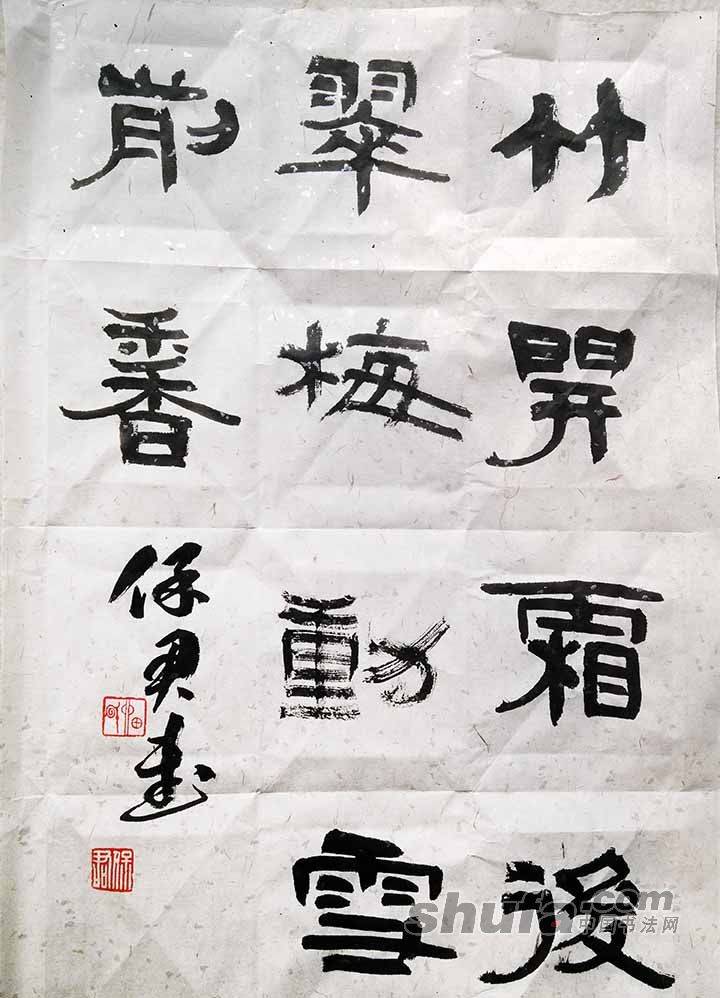 竹開霜後
翠梅動雪
前香
保君書
保君
shufa.com
中国书法网